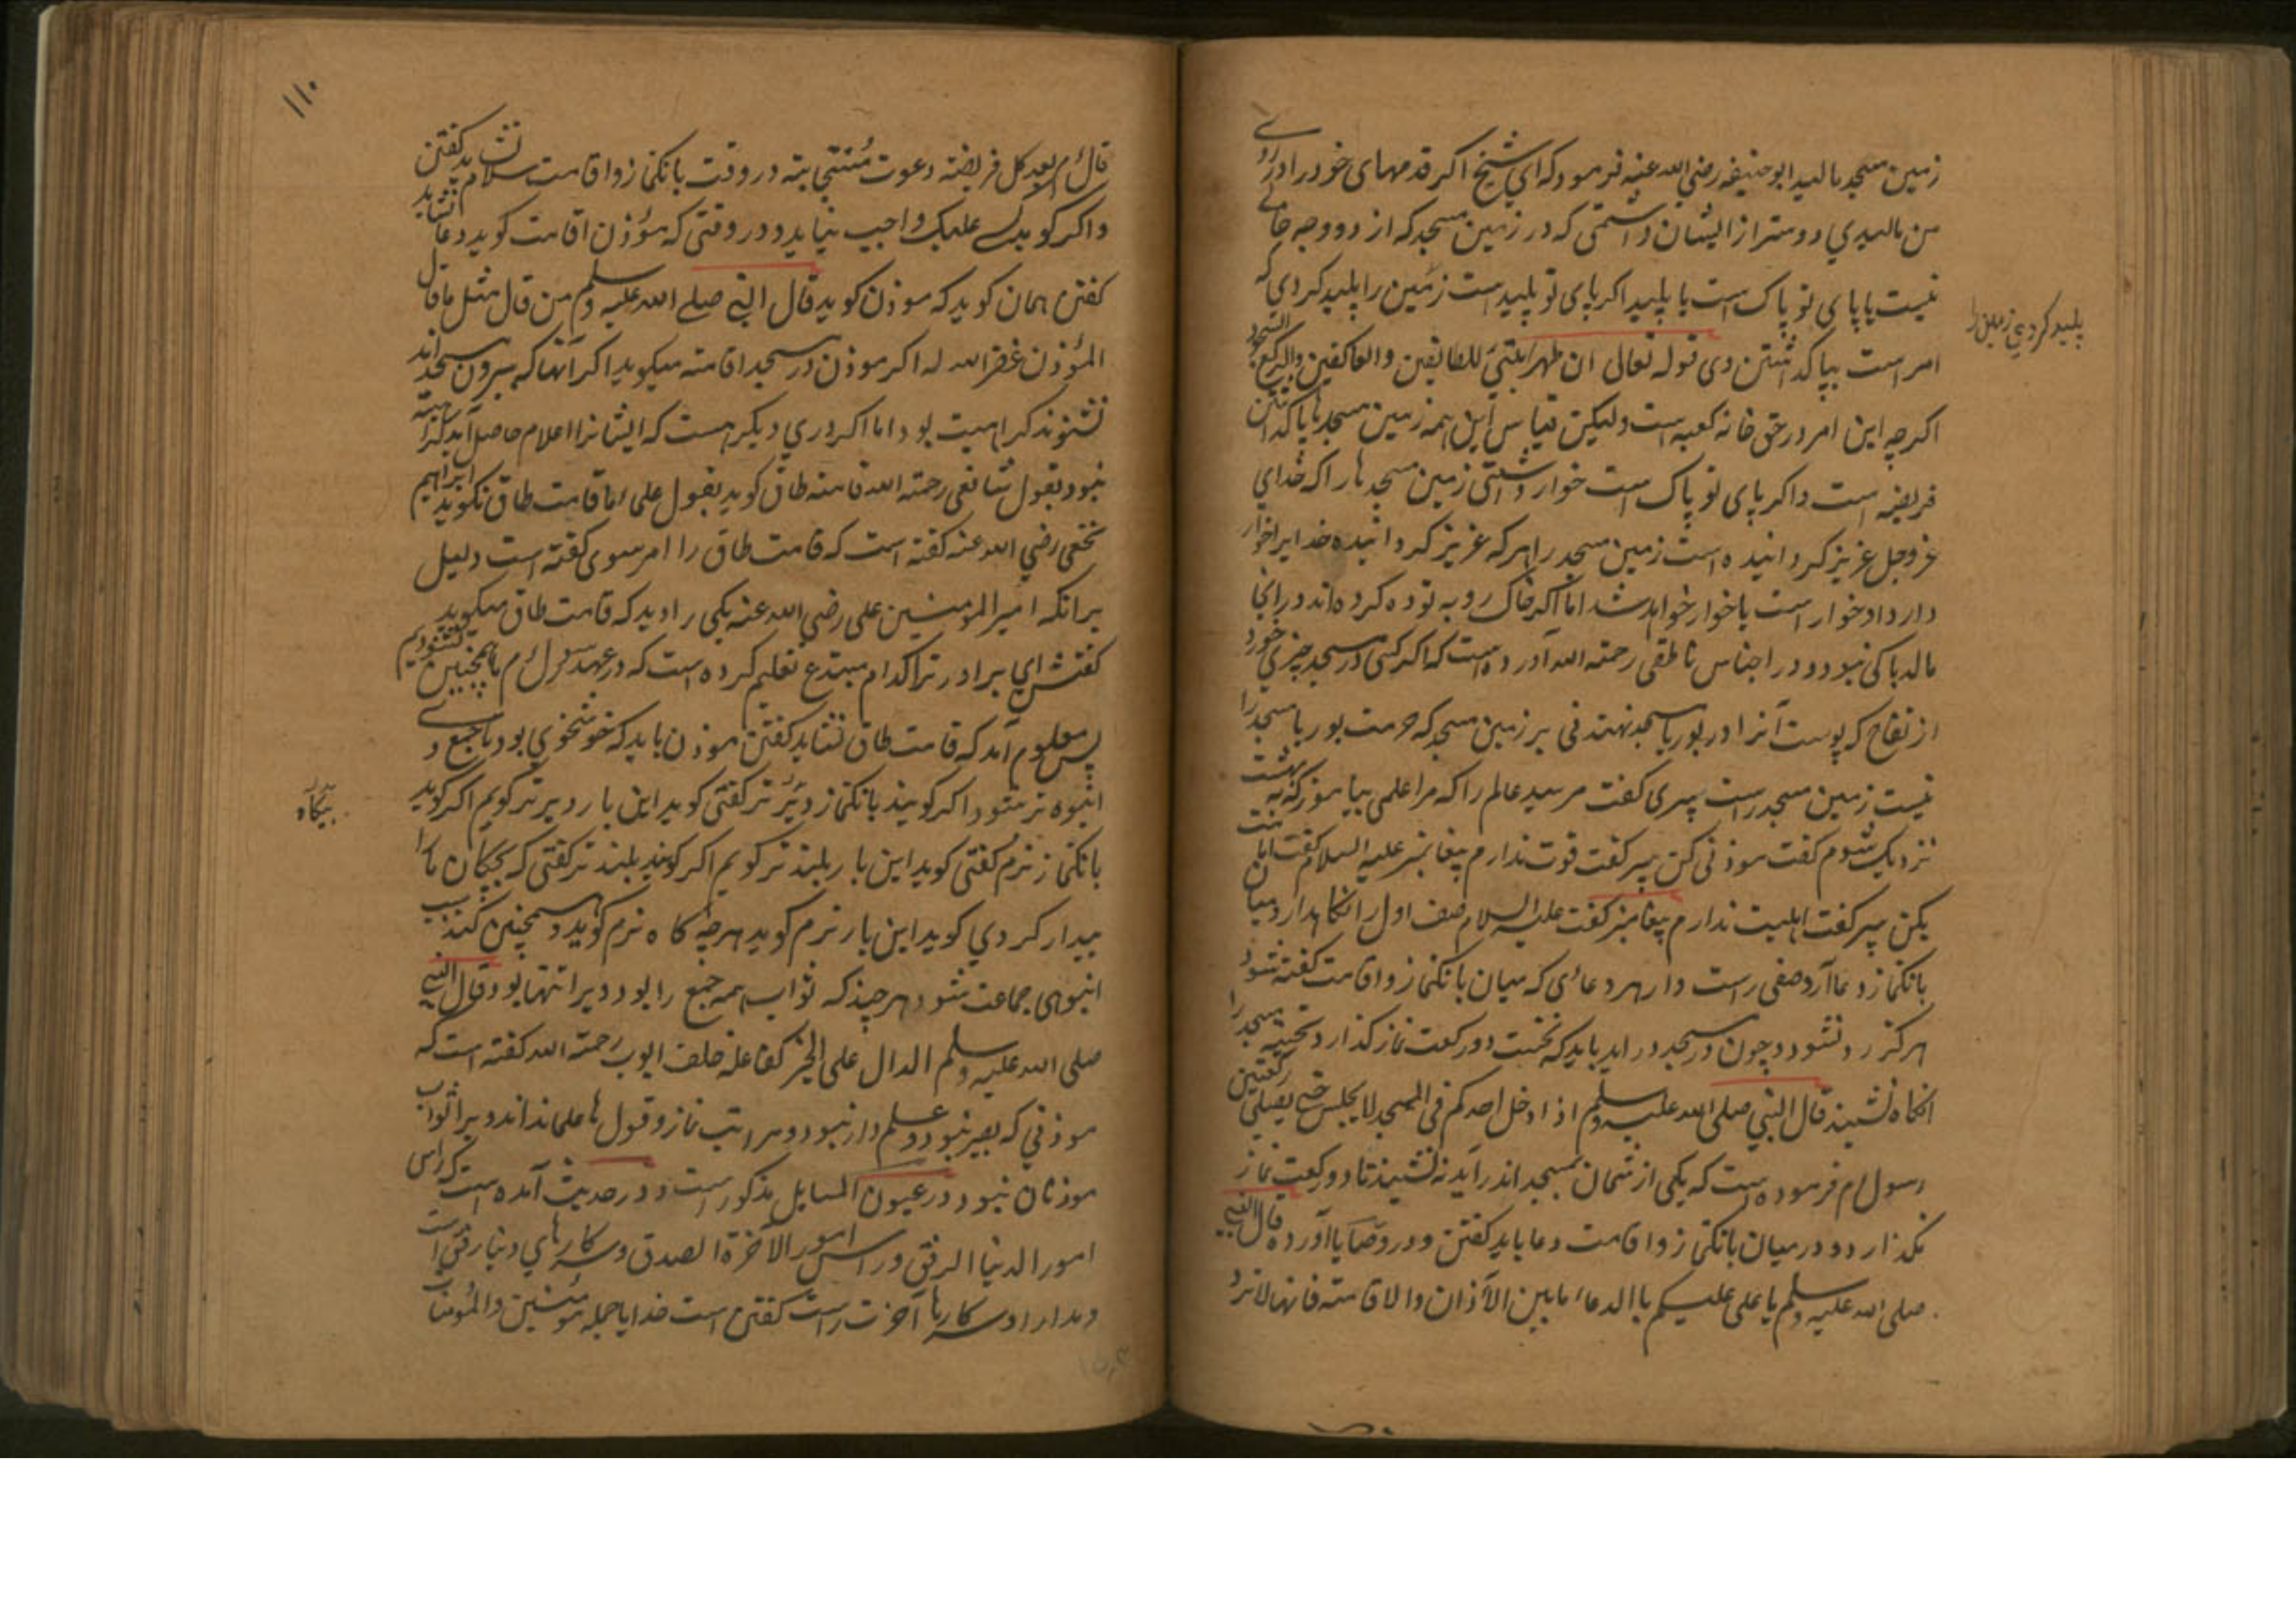 زمین مسجد مالید ابو حنیفه رضي الله عنه فرمود که اي شیخ اکر قدمهای خود را در روے
من مالیدي دوستر از ایشان داشتمی که در زمین مسجد که از دو وجه خالے
نیست یا پای تو پاک است یا پلید اکر پای تو پلید است زمین را پلید کردي که
پلید کردي زمین را
امر است بپاکداشتن وی قوله تعالی ان طهرا بیتی للطائفین والعاکفین والرکع السجود
اکرچه این امر در حق خانه کعبه است ولیکن قیاس این همه زمین مسجدها پاکداشتن
فریضه است واکر پای تو پاک است خوار داشتی زمین مسجدها را که خدای
عزوجل عزیز کردانیده است زمین مسجد را هر که عزیز کردانیده خدایرا خوار
دارد او خوار است یا خوار خواهد شد اما اکر خاک روبه توده کرده اند در انجا
مالد باکی نبود ودر اجناس ناطقی رحمته الله آورده است که اکر کسی در مسجد چیزی خورد
از تفاح که پوست آنرا در بوریا مسجد نهند نی بر زمین مسجد که حرمت بوریا مسجد را
نیست زمین مسجد راست پیری کفت مر سید عالم را که مرا علمی بیاموز که به بهشت
نزدیک شوم کفت موذنی کن پیر کفت قوت ندارم پیغامبر علیه السلام کفت امامت
بکن پیر کفت اهلیت ندارم پیغامبر کفت علیه السلام صف اول را نکاهدار ومیان
بانکنماز دعا آر وصفی راست دار هر دعائی که میان بانکنماز واقامت کفته شود
هرکز رد نشود وچون در مسجد در اید باید که نخست دو رکعت نماز کذارد تحیته مسجد را
انکاه نشیند قال النبي صلی الله علیه وسلم اذا دخل احدکم فی المسجد لا یجلس حتے یصلی رکعتین
رسول م فرموده است که یکی از شمایان بمسجد اندر آید نه نشیند تا دو رکعت نماز
بکذارد ودر میان بانکنماز واقامت دعا باید کفتن ودر وصایا آورده قال النبي
صلی الله علیه وسلم یا علی علیکم باالدعاء ما بین الآذان والاقامته فانها لا ترد
۱۱۰
قال م بعد کل فریضته دعوت مستجابته در وقت بانکنماز واقامت سلام نشاید کفتن
واکر کوید علیک واجب نیاید ودر وقتی که مؤذن اقامت کوید دعا نشاید
کفتن همان کوید که موذن کوید قال النبي صلے الله علیه وسلم من قال مثل ما قال
المؤذن غفر الله له اکر موذن در مسجد اقامته میکوید اکر آنها که بیرون مسجد اند
نشنوند کراهیت بود اما اکر دري دیکر هست که ایشانرا اعلام حاصل آید کراهیته
نبود بقول شافعی رحمته الله قامته طاق کوید بقول علماء ما قامت طاق نکوید ابراهیم
نخعی رضي الله عنه کفته است که قامت طاق را امر سوی کفته است دلیل
برانکه امیر المومنین علی رضي الله عنه یکی را دید که قامت طاق میکوید
کفتش ای برادر ترا کدام مبتدع تعلیم کرده است که در عهد رسول م ما همچنین نشنودیم
پس معلوم آمد که قامت طاق نشاید کفتن موذن باید که خوشخوي بود تا جمع وے
انبوه تر شود واکر کویند بانکنماز دیر تر کفتی کوید این بار دیر تر کویم اکر کوید
بیکاه
بانکنماز نرم کفتی کوید این بار بلند تر کویم اکر کویند بلند تر کفتی که بچکان ما را
بیدار کردي کوید این بار نرم کوید هر چه کاه نرم کوید وهمچنین کند سبب
انبوهی جماعت شود هر چند که ثواب همه جمع را بود ویرا تنها بود وقال النبي
صلی الله علیه وسلم الدال علی الخیر کفاعله خلف ایوب رحمته الله کفته است که
موذني که بصیر نبود وعلم دار نبود ومراتب نماز وقول ها علما نداند ویرا ثواب
موذنان نبود ودر عیون المسایل مذکور است ودر حدیث آمده است که راس
امور الدنیا الرفق وراس امور الآخرة الصدق وسر کارهاي دنیا رفق است
ومدارا وسر کارها آخرت راست کفتن است خدایا جمله مؤمنین والمؤمنات